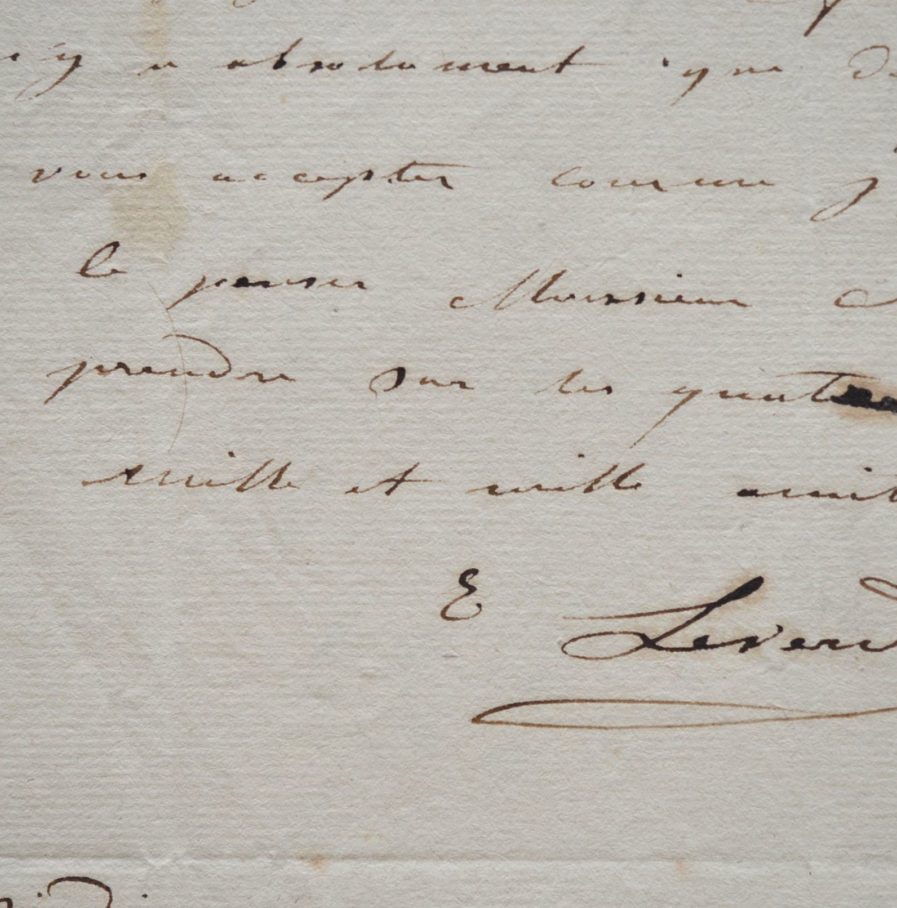 y a absolument que de
vous accepter comme j
le penser Monsieur
prendre sur les quatre
mille et mille amit
E Leverd